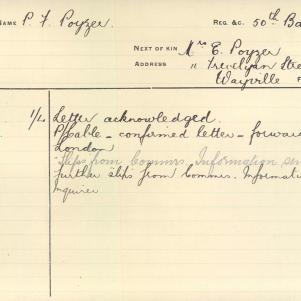 NAME P. F. Poyzer REG. &C. 50th Ba
NEXT OF KIN Mrs E. Poyzer
ADDRESS " Trevelyan Stre
Wayville F
1/4 Letter acknowledged.
P/Cable - confirmed letter - forwar
London
Slips from Commrs. Information sen
further slips from Commrs. Informati
Inquirer